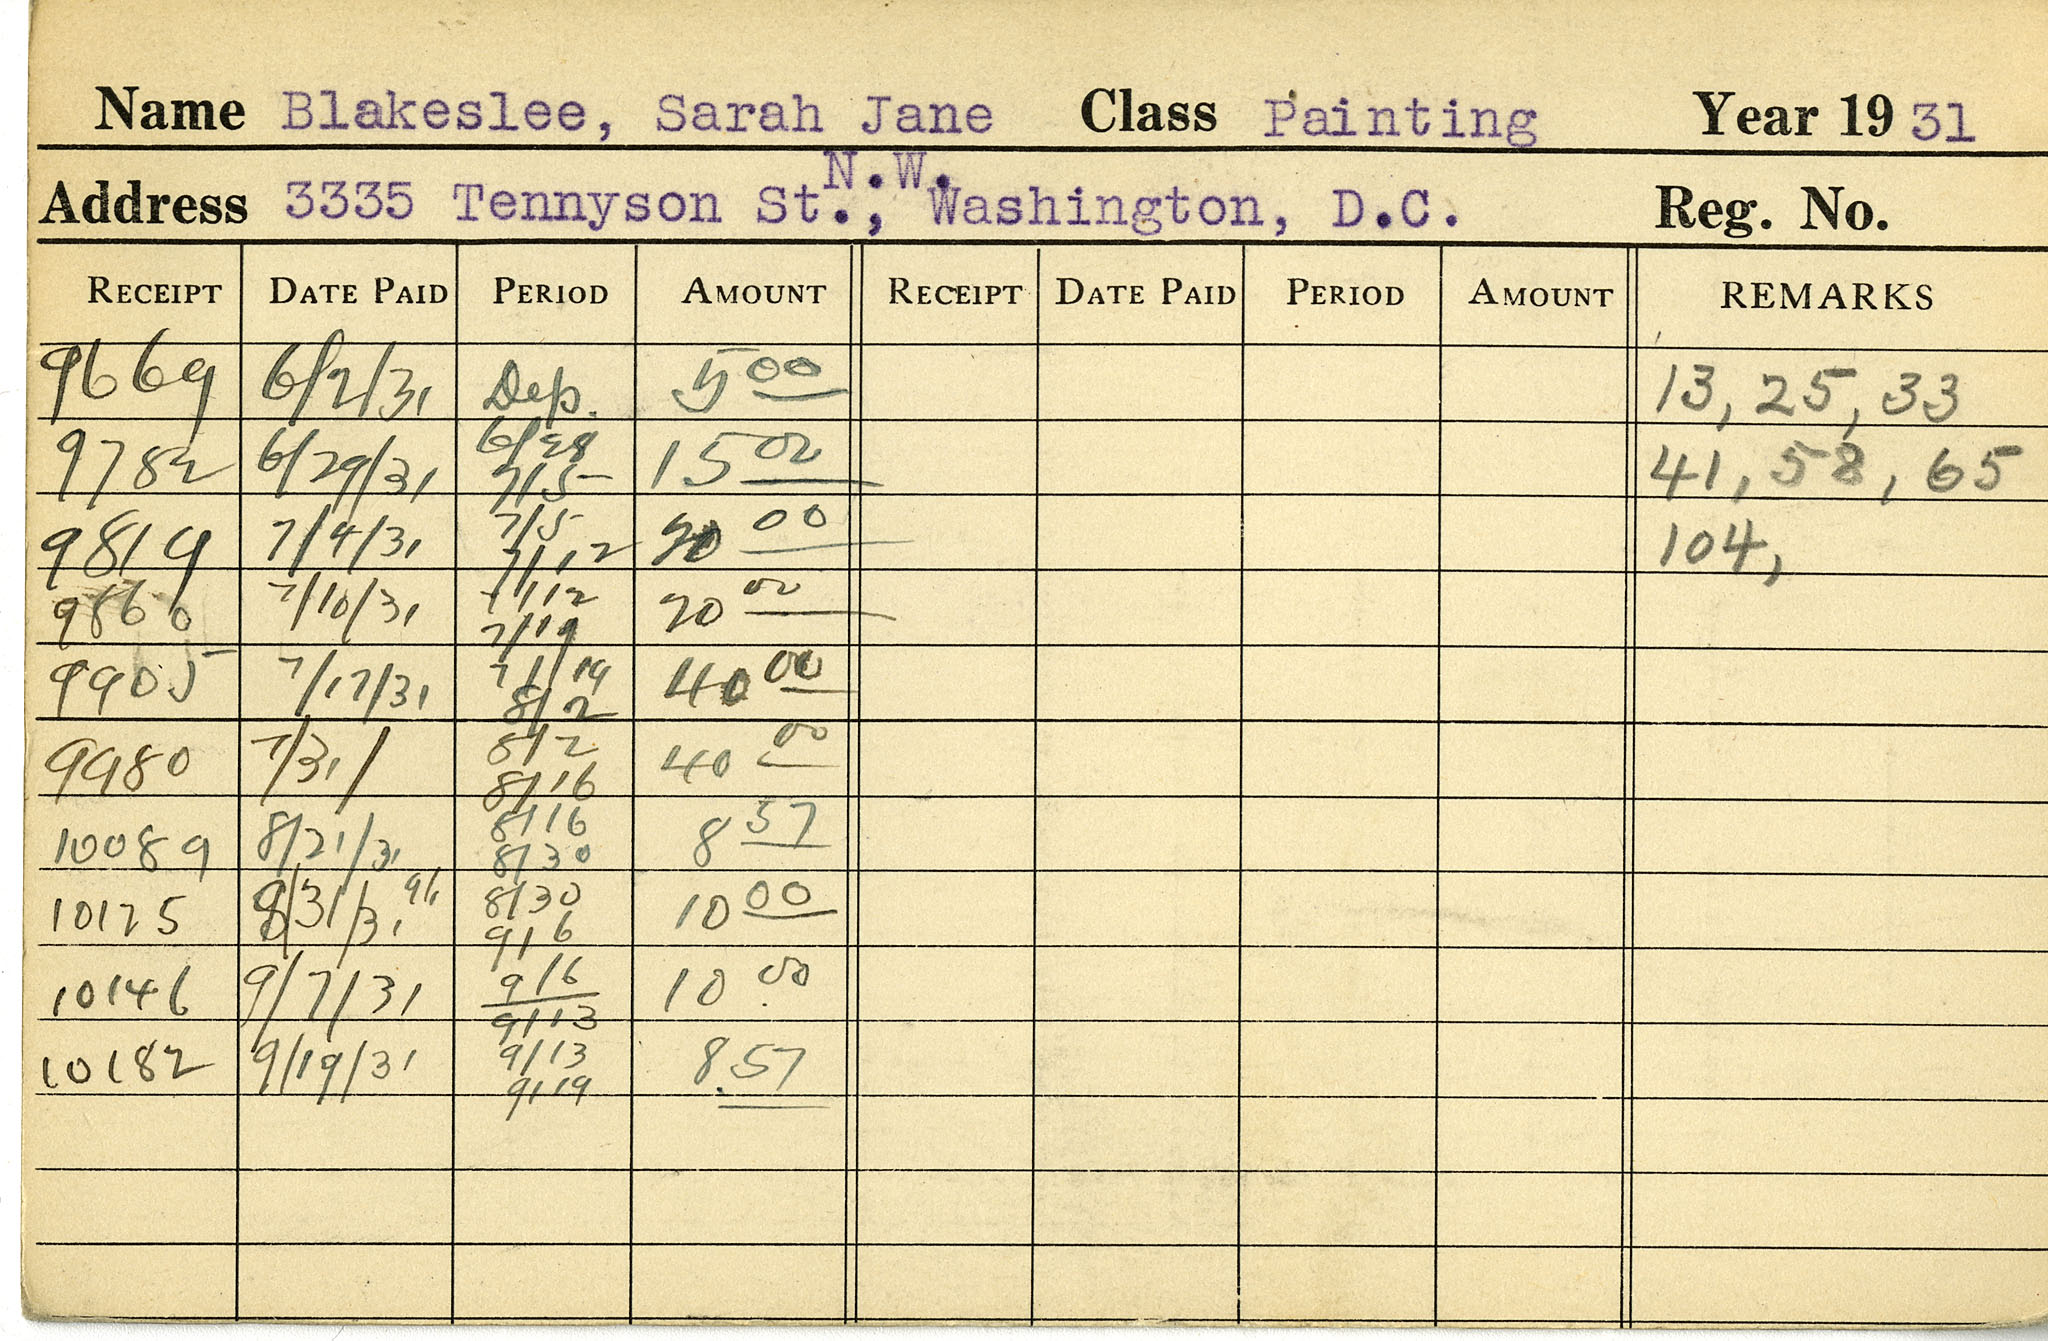 Name Blakeslee, Sarah Jane Class Painting Year 19 31
Address 3335 Tennyson St., N.W. Washington, D.C. Reg. No.
RECEIPT DATE PAID PERIOD AMOUNT RECEIPT DATE PAID PERIOD AMOUNT REMARKS
9669 6/2/31 Dep. 5 00 13, 25, 33
9782 6/29/31 6/28 7/5 15 00 41, 58, 65
9819 7/4/31 7/5 7/12 20 00 104,
9860 7/10/31 7/12 7/19 20 00
9905 7/17/31 7/19 8/2 40 00
9980 7/31/ 8/2 8/16 40 00
10089 8/21/31 8/16 8/30 8 57
10125 8/31/31 9/1 8/30 9/6 10 00
10146 9/7/31 9/6 9/13 10 00
10182 9/19/31 9/13 9/19 8.57